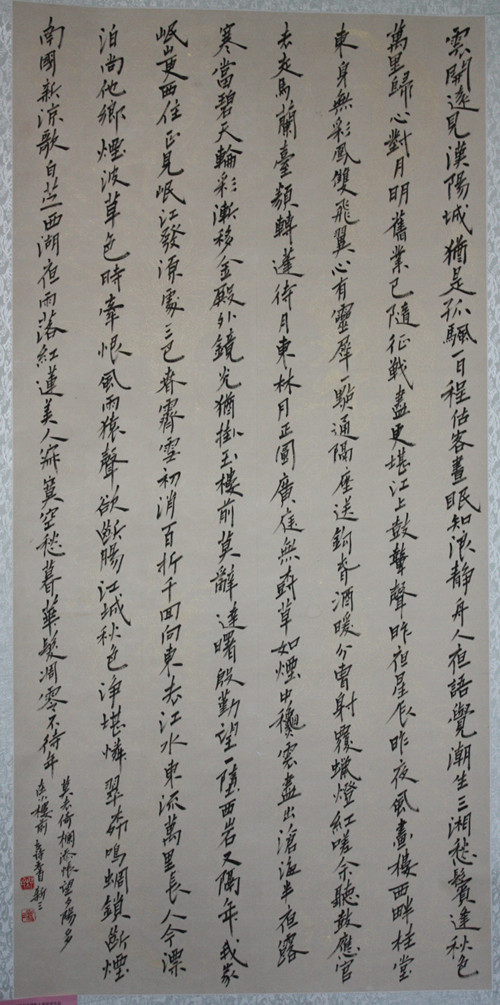 雲開遠見漢陽城猶是孤颿一日程估客晝眠知浪靜舟人夜語覺潮生三湘愁鬢逢秋色
萬里歸心對月明舊業已隨征戰盡更堪江上鼓鼙聲昨夜星辰昨夜風畫樓西畔桂堂
東身無彩鳳雙飛翼心有靈犀一點通隔座送鉤春酒暖分曹射覆蠟燈紅嗟余聽鼓應官
去走馬蘭臺類轉蓬待月東林月正圓廣庭無樹草如煙中穐雲盡出滄海半夜露
寒當碧天輪彩漸移金殿外鏡光猶掛玉樓前莫辭達曙殷勤望一墮西岩又隔年我家
岷山更西住正見岷江發源處三巴春霽雪初消百折千回向東去江水東流萬里長人今漂
泊尚他鄉煙波草色時牽恨風雨猿聲欲斷腸江城秋色淨堪憐翠柳鳴蜩鎖斷煙
南國新涼歌白苧西湖夜雨落紅蓮美人寂寞空愁暮華髮凋零不待年
莫去倚欄添悵望夕陽多
在樓前